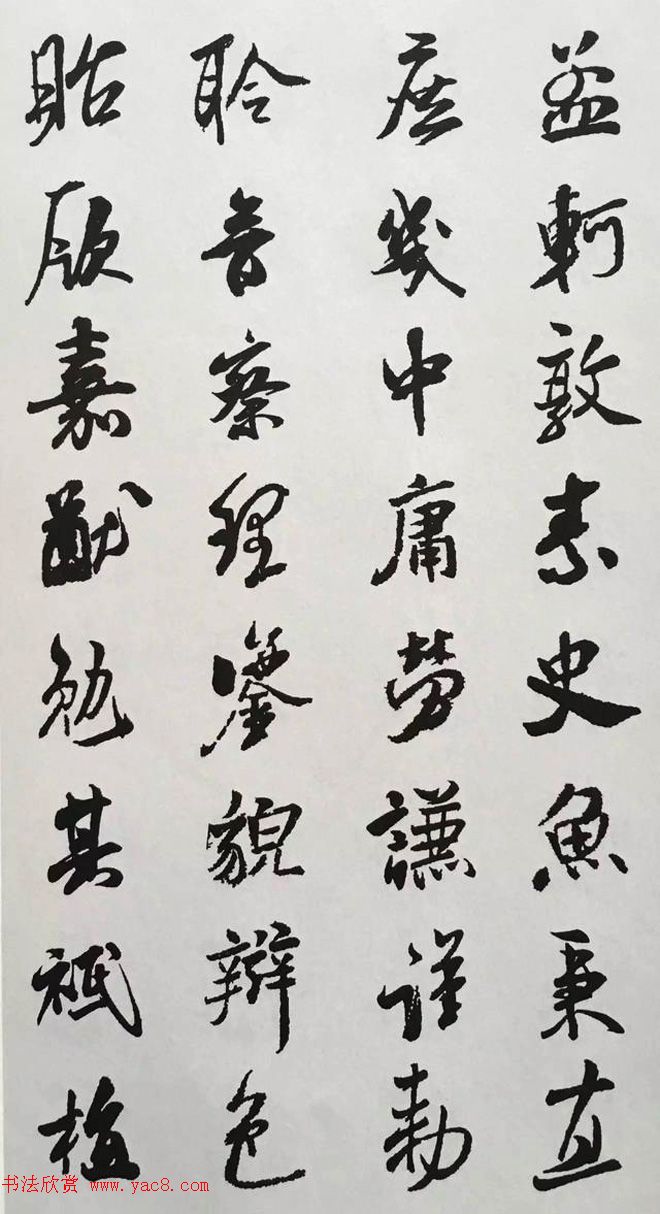 孟軻敦素史魚秉直
庶幾中庸勞謙謹勅
聆音察理鑒貌辯色
貽厥嘉猷勉其祗植
书法欣赏 www.yac8.com